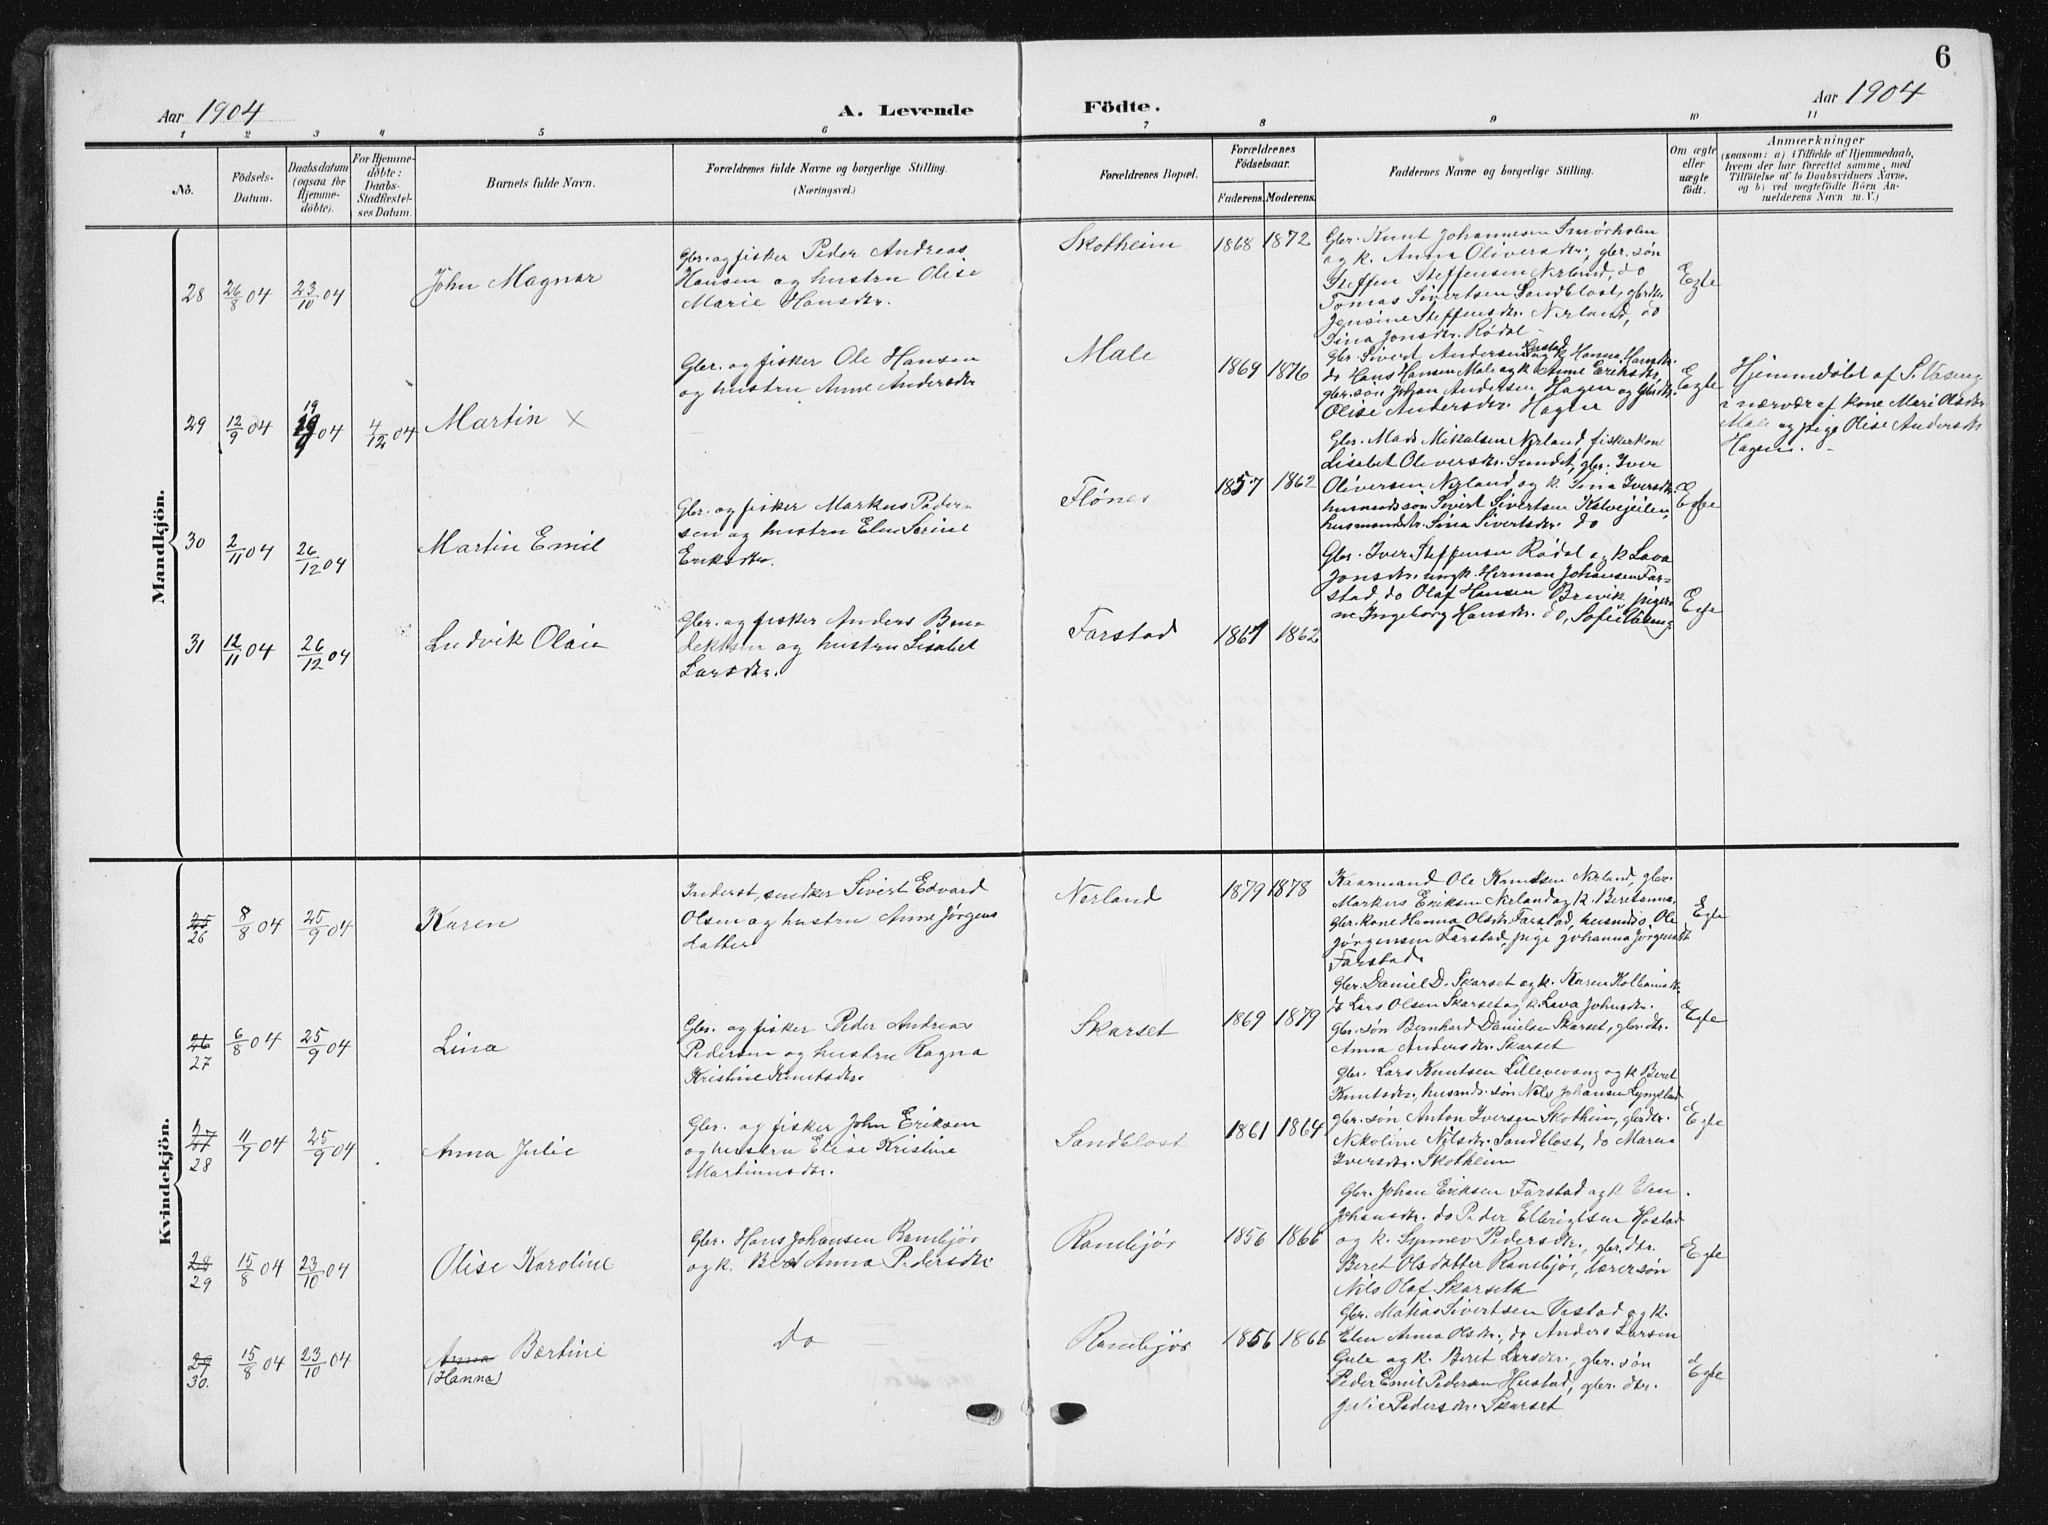 6
Aar 1904
A. Levende
Födte.
Aar 1904
1 2 3 4 5 6 7 8 9 10 11
No.
Födsels-
Datum.
Daabsdatum
(ogsaa for
Hjemme-
döbte).
For Hjemme-
döbte:
Daabs-
Stadfæstel-
ses Datum.
Barnets fulde Navn.
Forældrenes fulde Navne og borgerlige Stilling.
(Næringsvei.)
Forældrenes Bopæl.
Forældrenes
Födselsaar.
Faderens. Moderens.
Faddernes Navne og borgerlige Stilling.
Om ægte
eller
uægte
födt.
Anmærkninger
(saasom: a) i Tilfælde af Hjemmedaab,
hvem der har forrettet samme, med
Tilföielse af to Daabsvidners Navne,
og b) ved uægtefödte Börn An-
melderens Navn m. V.)
Mandkjön.
28
26/8 04
23/10 04
John Magnar
Gbr. og fisker Peder Andreas
Hansen og hustru Olise
Marie Hansdtr.
Skotheim
1868 1872
Gbr. Knut Johannesen Smørholm
og k. Anna Oliversdtr., gbr. søn
Steffen Steffensen Nerland, do
Tomas Sivertsen Sandblost, gbrdtr.
Jensine Steffensdtr. Nerland, do
Sina Jonsdtr. Rødal
Egte
29
12/9 04
19
19/9 04
4/12 04
Martin x
Gbr. og fisker Ole Hansen
og hustru Anne Andersdtr
Male
1869 1876
Hustad
Gbr. Sivert Andersen og k Hanna Hansdtr.
do Hans Hansen Male og k Anne Eriksdtr,
gbr. søn Johan Andersen Hagen og gbrdtr.
Olise Andersdtr. Hagen
Egte
Hjemmedøbt af S. Vaseng
i nærvær af kone Mari Olsdtr.
Male og pige Olise Andersdtr
Hagen.
30
2/11 04
26/12 04
Martin Emil
Gbr. og fisker Markus Peder-
sen og hustru Elen Serine
Eriksdtr.
Flønes
1857 1862
Gbr. Mads Mikalsen Nerland, fiskerkone
Lisabet Oliversdtr. Sundet, gbr. Iver
Oliversen Nerland og k. Sina Iversdtr.
husmandssøn Sivert Sivertsen
husmandsdtr. Sina Sivertsdtr. do
Egte
31
12/11 04
26/12 04
Ludvik Olai
Gbr. og fisker Anders Bene
dektsen og hustru Lisabet
Larsdtr.
Farstad
1867 1862
Gbr. Iver Steffensen Rødal og k Lava
Jonsdtr. ungk. Herman Johansen Far-
stad, do Olaf Hansen Brevik, piger-
ne Ingeborg Hansdtr. do, Sofie Vaseng
Egte
Kvindekjön.
25
26
8/8 04
25/9 04
Karen
Inderst, smdker Sivert Edvard
Olsen og hustru Anne Jørgens
datter
Nerland
1879 1878
Kaarmand Ole Knutsen Nerland, gbr.
Markus Eriksen Nerland og k. Beretanna,
gbr. kone Hanna Olsdtr. Farstad, husmds. Ole
Jørgensen Farstad, pige Johanna Jørgensdt
Farstad.
Egte
26
27
6/8 04
25/9 04
Lina
Gbr. og fisker Peder Andreas
Pedersen og hustru Ragna
Kristine Knutsdtr.
Skarset
1869 1879
Gbr. Daniel D. Skarset og k. Karen Kolbeinsdtr.
do Lars Olsen Skarset og k. Lava Johnsdtr.
Gbr. søn Bernhard Danielsen Skarset, gbr. dtr.
Anna Andersdtr. Skarset
Egte
27
28
11/7 04
25/9 04
Anna Julie
Gbr. og fisker John Eriksen
og hustru Elise Kristine
Martinusdtr.
Sandblost
1861 1864
Gbr. Lars Knutsen Lillevevang og k Beret
Knutsdtr., husmds. søn Nils Johansen Lyngstad
gbr. søn Anton Iversen Skotheim, gbrdtr.
Nekoline Nilsdtr. Sandblost, do Maren
Iversdtr. Skotheim
Egte
28
29
15/8 04
23/10 04
Olise Karoline
Gbr. Hans Johansen Rambjør
og k. Beret Anna Pedersdtr
Rambjør
1856 1866
Gbr. Johan Eriksen Farstad og k Elen
Johansdtr. do Peder Elbrigtsen Hostad
og k. Synnev Pedersdtr., gbr. dtr.
Beret Olsdatter Rambjør, lærersøn
Nils Olaf Skarseth
Egte
29
30.
15/8 04
23/10 04
Anna Bertine
(Hanna)
Do
Rambjør
1856 1866
Gbr. Matias Sivertsen Vestad og k.
Elen Anna Olsdtr. do Anders Larsen
Gule og k. Beret Larsdtr., gbr. søn
Peder Emil Pedersen Hustad, gbr. dtr.
Julie Pedersdtr. Skarset
Egte